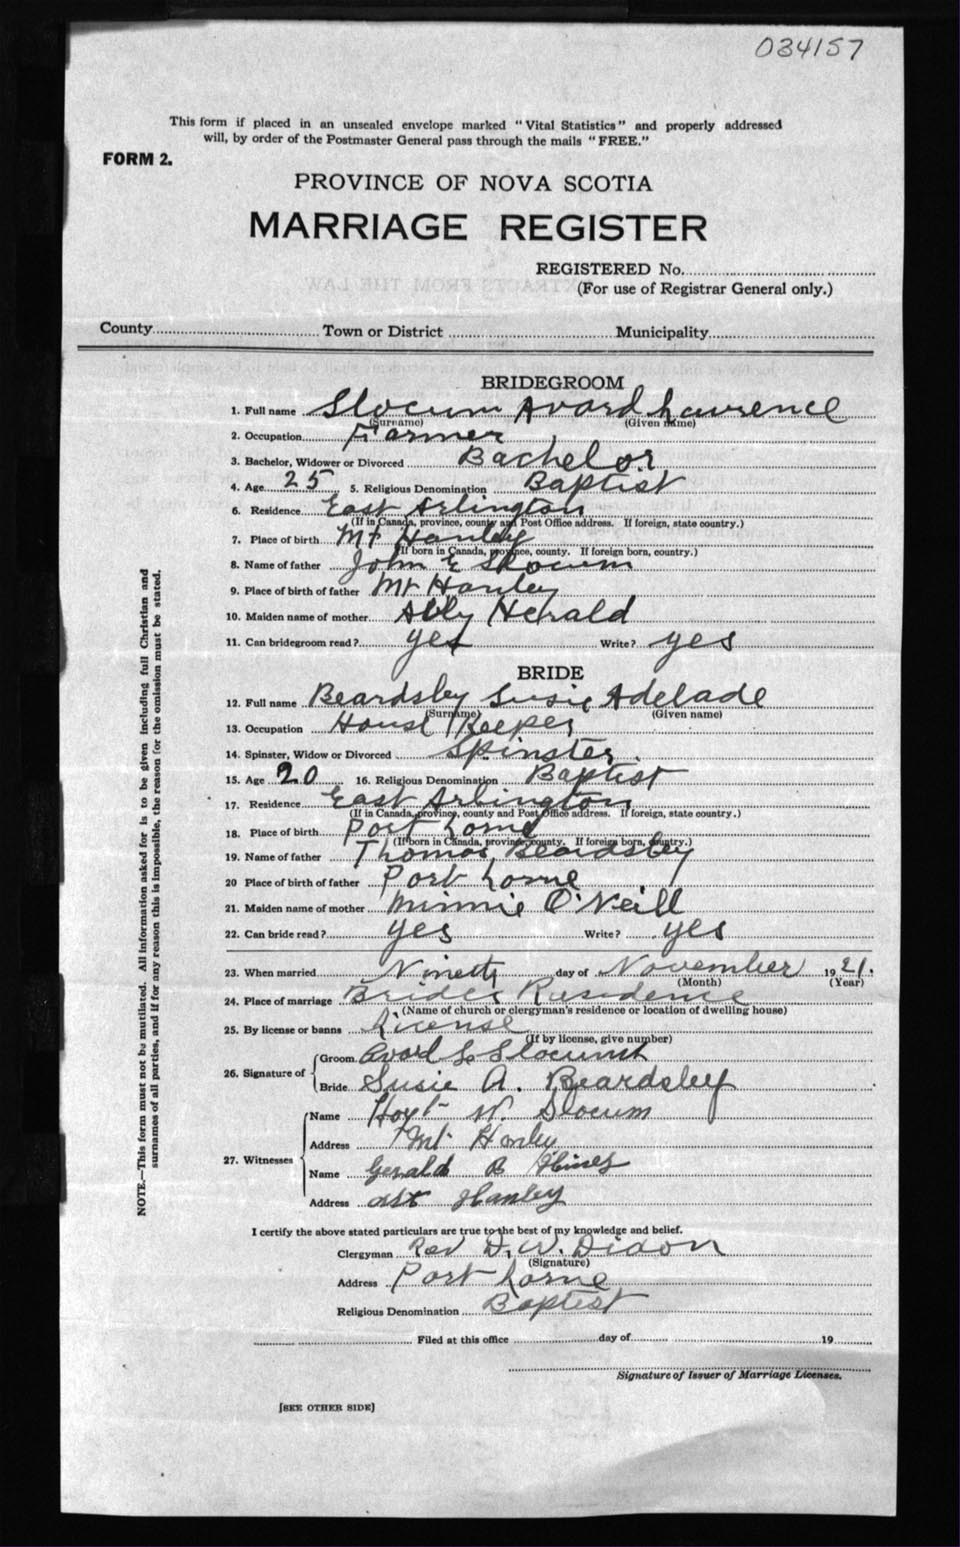 034157
This form if placed in an unsealed envelope marked "Vital Statistics" and properly addressed
will, by order of the Postmaster General pass through the mails "FREE."
FORM 2.
PROVINCE OF NOVA SCOTIA
MARRIAGE REGISTER
REGISTERED No.
(For use of Registrar General only.)
County Town or District Municipality
BRIDEGROOM
1. Full name Slocum Avard Lawrence
(Surname) (Given name)
2. Occupation Farmer
3. Bachelor, Widower or Divorced Bachelor
4. Age 25 5. Religious Denomination Baptist
6. Residence East Arlington
(If in Canada, province, county and Post Office address. If foreign, state country.)
7. Place of birth Mt Hanley
(If born in Canada, province, county. If foreign born, country.)
8. Name of father John E Slocum
9. Place of birth of father Mt Hanley
10. Maiden name of mother Abby Herald
11. Can bridegroom read? yes Write? yes
BRIDE
12. Full name Beardsley Susie Adelade
(Surname) (Given name)
13. Occupation House Keeper
14. Spinster, Widow or Divorced Spinster
15. Age 20 16. Religious Denomination Baptist
17. Residence East Arlington
(If in Canada, province, county and Post Office address. If foreign, state country.)
18. Place of birth Port Lorne
(If born in Canada, province, county. If foreign born, country.)
19. Name of father Thomas Beardsley
20 Place of birth of father Port Lorne
21. Maiden name of mother Minnie O'Neill
22. Can bride read? yes Write? yes
23. When married day of November 19 21.
(Month) (Year)
24. Place of marriage Brides Residence
(Name of church or clergyman's residence or location of dwelling house)
25. By license or banns License
(If by license, give number)
26. Signature of
Groom Avard L Slocumb
Bride Susie A. Beardsley
27. Witnesses
Name Hoyt W Slocum
Address Mt Hanley
Name Gerald B
Address Hanley
I certify the above stated particulars are true to the best of my knowledge and belief.
Clergyman Rev D. W. Dixon
(Signature)
Address Port Lorne
Religious Denomination Baptist
Filed at this office day of 19
Signature of Issuer of Marriage Licenses.
[SEE OTHER SIDE]
NOTE.—This form must not be mutilated. All information asked for is to be given including full Christian and
surnames of all parties, and if for any reason this is impossible, the reason for the omission must be stated.